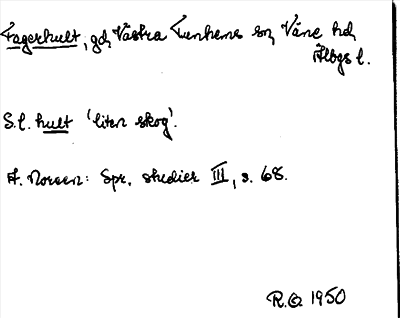 Fagerhult, gd, Västra Tunhems sn, Väne hd,
Älvbgs l.
S.l. hult 'liten skog'.
A. Noreen: Spr. studier III, s. 68.
R.G. 1950